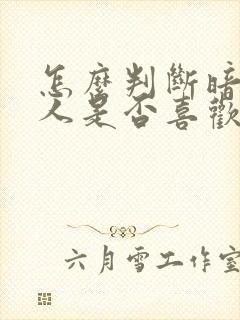 怎麼判斷暗
人是否喜歡
六月雪工作室